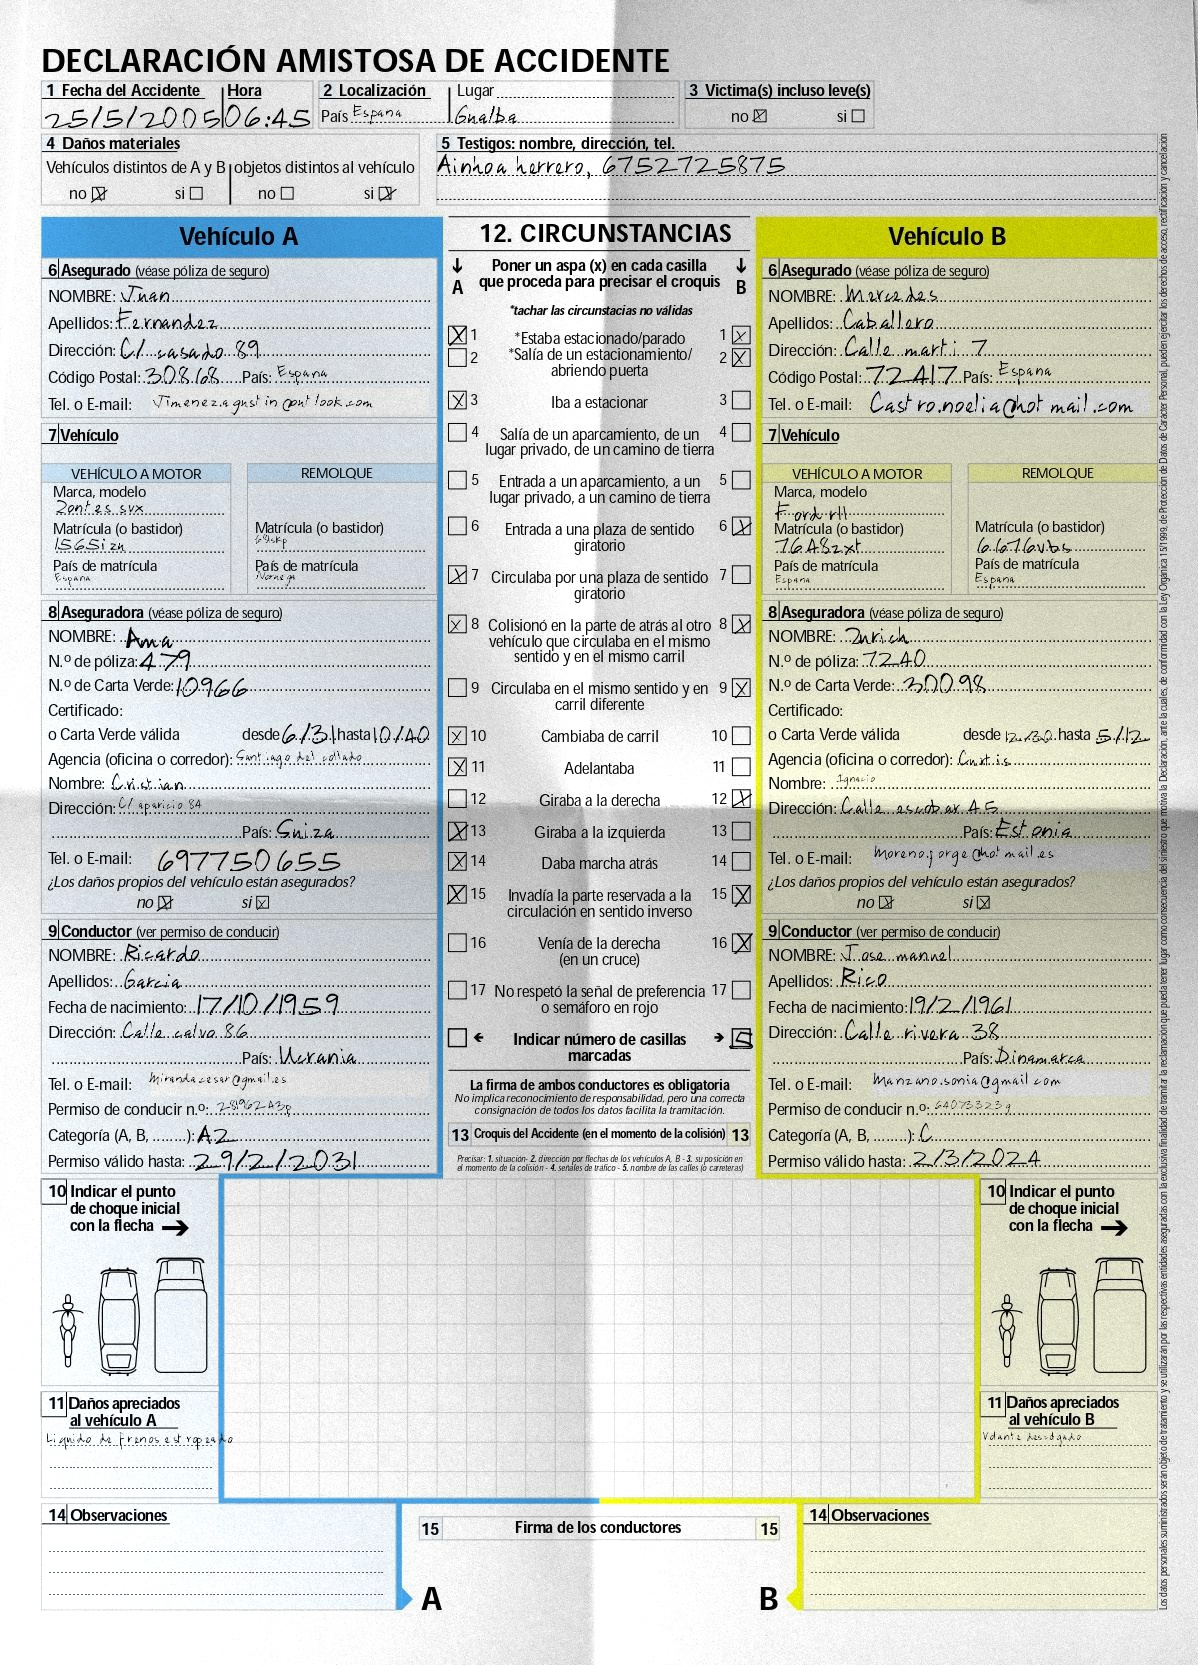 DECLARACIÓN AMISTOSA DE ACCIDENTE
1 Fecha del Accidente Hora
25/5/2005 06:45
2 Localización Lugar
País España Gualba
3 Victima(s) incluso leve(s)
no si
4 Daños materiales
Vehículos distintos de A y B objetos distintos al vehículo
no si no si
5 Testigos: nombre, dirección, tel.
Ainhoa herrero, 6752725875
Vehículo A
6 Asegurado (véase póliza de seguro)
NOMBRE: Juan
Apellidos: Fernandez
Dirección: C/ casado 89
Código Postal: 30868 País: España
Tel. o E-mail: Jimenez.agustin@outlook.com
7 Vehículo
VEHÍCULO A MOTOR REMOLQUE
Marca, modelo
Zontes svx
Matrícula (o bastidor) Matrícula (o bastidor)
1565izu
País de matrícula País de matrícula
España Noruega
8 Aseguradora (véase póliza de seguro)
NOMBRE: Ama
N.º de póliza: 479
N.º de Carta Verde: 10966
Certificado:
o Carta Verde válida desde 6/31 hasta 10/40
Agencia (oficina o corredor): Santiago del collado
Nombre: Cristian
Dirección: C/ aparicio 84
País: Suiza
Tel. o E-mail: 697750655
¿Los daños propios del vehículo están asegurados?
no si
9 Conductor (ver permiso de conducir)
NOMBRE: Ricardo
Apellidos: Garcia
Fecha de nacimiento: 17/10/1959
Dirección: Calle calvo 86
País: Ucrania
Tel. o E-mail: Mirandacesar@gmail.es
Permiso de conducir n.º: 28196243p
Categoría (A, B, ........): A2
Permiso válido hasta: 29/2/2031
12. CIRCUNSTANCIAS
A B
Poner un aspa (x) en cada casilla
que proceda para precisar el croquis
*tachar las circunstacias no válidas
1 *Estaba estacionado/parado 1
2 *Salía de un estacionamiento/ 2
abriendo puerta
3 Iba a estacionar 3
4 Salía de un aparcamiento, de un 4
lugar privado, de un camino de tierra
5 Entrada a un aparcamiento, a un 5
lugar privado, a un camino de tierra
6 Entrada a una plaza de sentido 6
giratorio
7 Circulaba por una plaza de sentido 7
giratorio
8 Colisionó en la parte de atrás al otro 8
vehículo que circulaba en el mismo
sentido y en el mismo carril
9 Circulaba en el mismo sentido y en 9
carril diferente
10 Cambiaba de carril 10
11 Adelantaba 11
12 Giraba a la derecha 12
13 Giraba a la izquierda 13
14 Daba marcha atrás 14
15 Invadía la parte reservada a la 15
circulación en sentido inverso
16 Venía de la derecha 16
(en un cruce)
17 No respetó la señal de preferencia 17
o semáforo en rojo
Indicar número de casillas 5
marcadas
La firma de ambos conductores es obligatoria
No implica reconocimiento de responsabilidad, pero una correcta
consignación de todos los datos facilita la tramitación.
13 Croquis del Accidente (en el momento de la colisión) 13
Precisar: 1. situación- 2. dirección por flechas de los vehículos A, B - 3. su posición en
el momento de la colisión - 4. señales de tráfico - 5. nombre de las calles (o carreteras)
Vehículo B
6 Asegurado (véase póliza de seguro)
NOMBRE: Mercedes
Apellidos: Caballero
Dirección: Calle marti 7
Código Postal: 72417 País: España
Tel. o E-mail: Castro.noelia@hotmail.com
7 Vehículo
VEHÍCULO A MOTOR REMOLQUE
Marca, modelo
Ford rll
Matrícula (o bastidor) Matrícula (o bastidor)
7648zxt 6676vbs
País de matrícula País de matrícula
España España
8 Aseguradora (véase póliza de seguro)
NOMBRE: Zurich
N.º de póliza: 7240
N.º de Carta Verde: 30098
Certificado:
o Carta Verde válida desde 12/30 hasta 5/12
Agencia (oficina o corredor): Curtis
Nombre: Ignacio
Dirección: Calle escobar 45
País: Estonia
Tel. o E-mail: Moreno.jorge@hotmail.es
¿Los daños propios del vehículo están asegurados?
no si
9 Conductor (ver permiso de conducir)
NOMBRE: Jose manuel
Apellidos: Rico
Fecha de nacimiento: 19/2/1961
Dirección: Calle rivera 38
País: Dinamarca
Tel. o E-mail: Manzano.sonia@gmail.com
Permiso de conducir n.º: 64073323g
Categoría (A, B, ........): C
Permiso válido hasta: 2/3/2024
10 Indicar el punto
de choque inicial
con la flecha
11 Daños apreciados
al vehículo A
Liquido de frenos estropeado
10 Indicar el punto
de choque inicial
con la flecha
11 Daños apreciados
al vehículo B
Volante desogado
14 Observaciones
15 Firma de los conductores 15
A B
14 Observaciones
Los datos personales suministrados serán objeto de tratamiento y se utilizarán por las respectivas entidades aseguradas con la exclusiva finalidad de tramitar la reclamación que pueda tener lugar como consecuencia del siniestro que motiva la Declaración, ante la cuales, de conformidad con la Ley Orgánica 15/1999, de Protección de Datos de Carácter Personal, pueden ejercitar los derechos de acceso, rectificación y cancelación